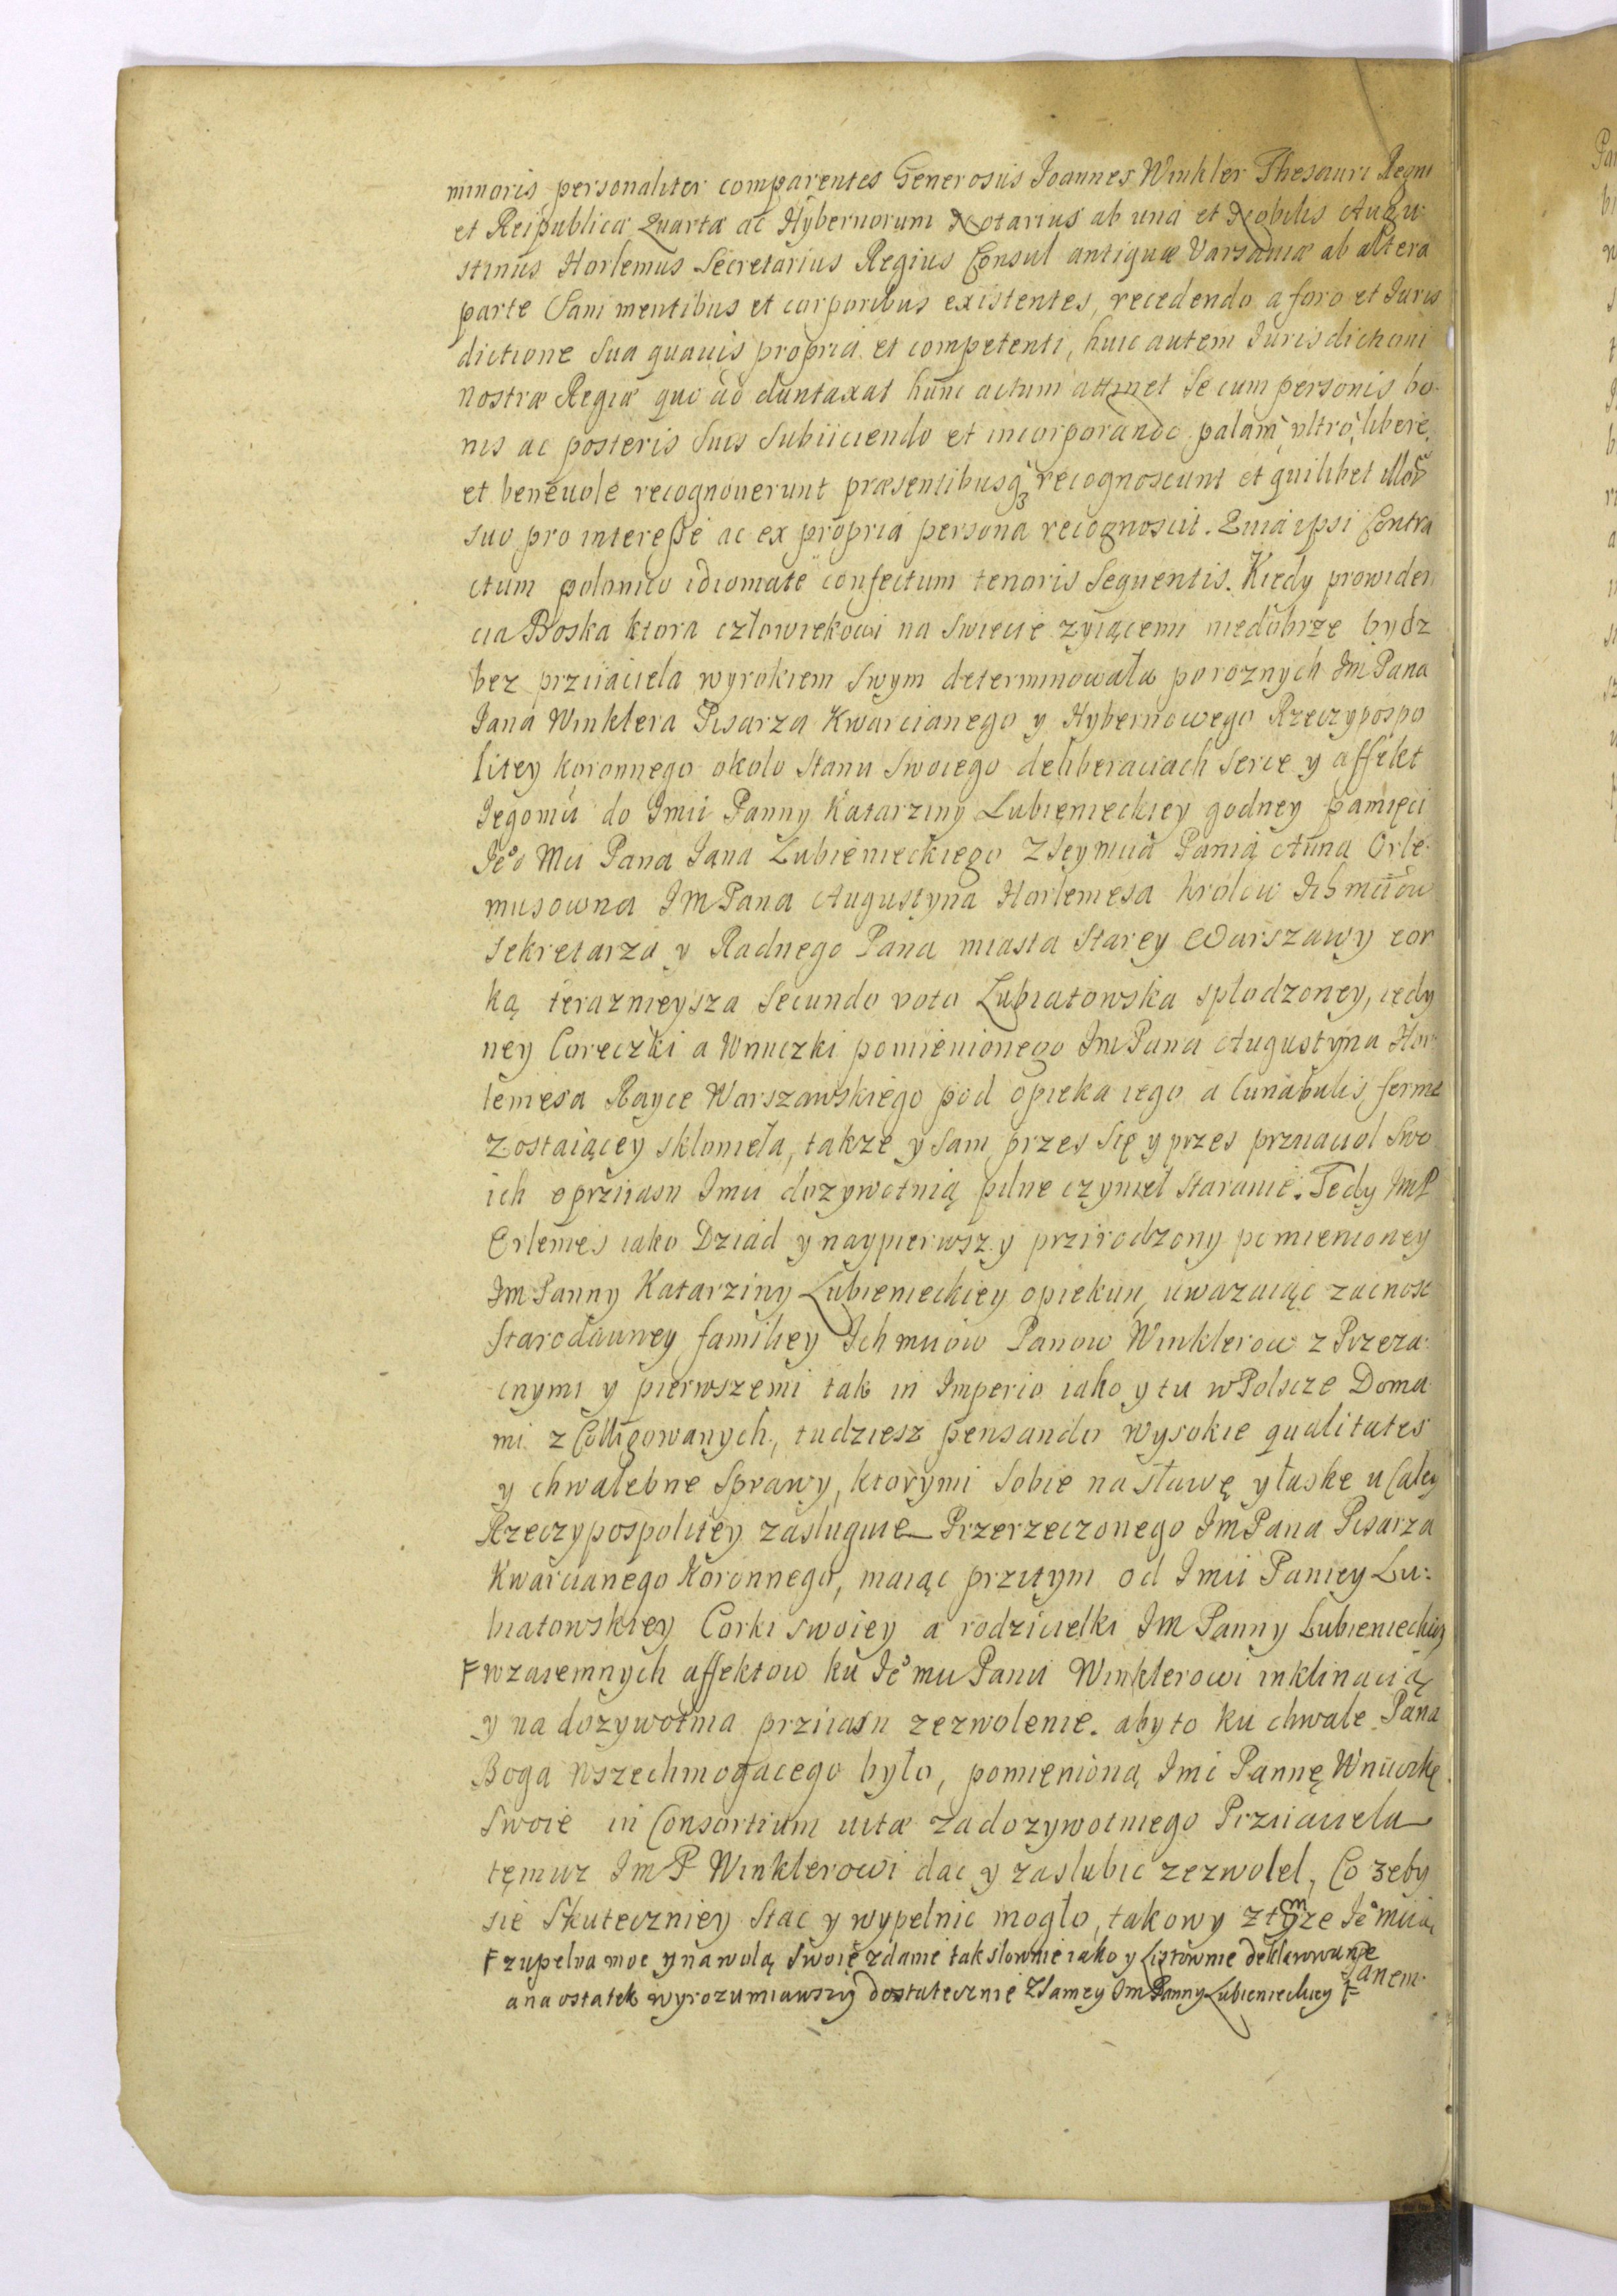 minoris personaliter comparentes Generosus Joannes Winkler Thesauri Regni
et Reipublicæ Quartæ ac Hybernorum Notarius ab una et Nobilis Augu-
stinus Horlemus Secretarius Regius Consul antiquæ Varsaviæ ab altera
parte Sani mentibus et corporibus existentes, recedendo a foro et Juris
dictione sua quavis propria et competenti, huic autem Jurisdictioni
nostræ Regiæ quo ad duntaxat hunc actum attinet se cum personis bo-
nis ac posteris suis subiiciendo et incorporando palam, ultrò, liberè,
et benevole recognoverunt præsentibusq3 recognoscunt et quilibet illor
suo pro interesse ac ex propria persona recognoscit. Quia ipsi Contra
ctum polonico idiomate confectum tenoris sequentis. Kiedy prowiden
cia Boska ktora człowiekowi na swiecie zyiącemu niedobrze bydz
bez przyiaciela wyrokiem swym determinowała poroznych Jm Pana
Jana Winklera Pisarza Kwarcianego y Hybernowego Rzeczypospo
litey koronnego okolo stanu swoiego deliberaciach serce y affekt
Jegomci do Jmci Panny Katarziny Lubienieckiey godney pamięci
Jeo Mci Pana Jana Lubienieckiego Z Jeymcia Panią Anną Orle-
musowna JM Pana Augustyna Horlemesa królow Ich mciow
sekretarza y Radnego Pana miasta Starey Warszawy cor
ką teraznieysza secundo voto Lubiatowska splodzoney, iedy
ney Coreczki a Wnuczki pomienionego Jm Pana Augustyna Hor
lemesa Rayce Warszawskiego pod opieka iego a cunabulis ferme
zostaiącey sklonieła, takze y sam przes się y przes przyiaciol swo
ich o przyiasn Jmci dozywotnią pilne czynieł staranie. Tedy Jm P
Orlemes iako Dziad y naypierwszy przirodzony pomienioney
Jm Panny Katarziny Lubienieckiey opiekun, uwazaiąc zacnosc
starodawney familiey Ich mciow Panow Winklerow z Przeza-
cnymi y pierwszemi tak in Imperio iako y tu w Polscze Doma
mi z Colligowanych, tudziesz pensando wysokie qualitates
y chwalebne sprawy, ktorymi sobie na sławę y łaske u Całey
Rzeczypospolitey zasluguie Przerzeczonego Jm Pana Pisarza
Kwarcianego Koronnego, maiąc przytym od Jmci Paniey Lu-
biatowskiey Corki swoiey a rodzicielki Jm Panny Lubienieckiey
F wzaiemnych affektow ku Jeo mu Panu Winklerowi inklinacią
y na dozywotnia przyiasn zezwolenie. aby to ku chwale Pana
Boga Wszechmogącego było, pomienioną Jmc Pannę Wnuczkę
swoie in Consortium vitæ za dozywotniego Przyiaciela
temuz Jm P Winklerowi dac y zaslubic zezwolel, Co zeby
sie skuteczniey stac y wypelnic mogło, takowy z tymze Jeo mcią
F zupelna moc y na wolą swoię zdanie tak slownie iako y listownie deklarowanie
Panem
a na ostatek wyrozumiawszy dostatecznie z samey Jm Panny Lubienieckiey F